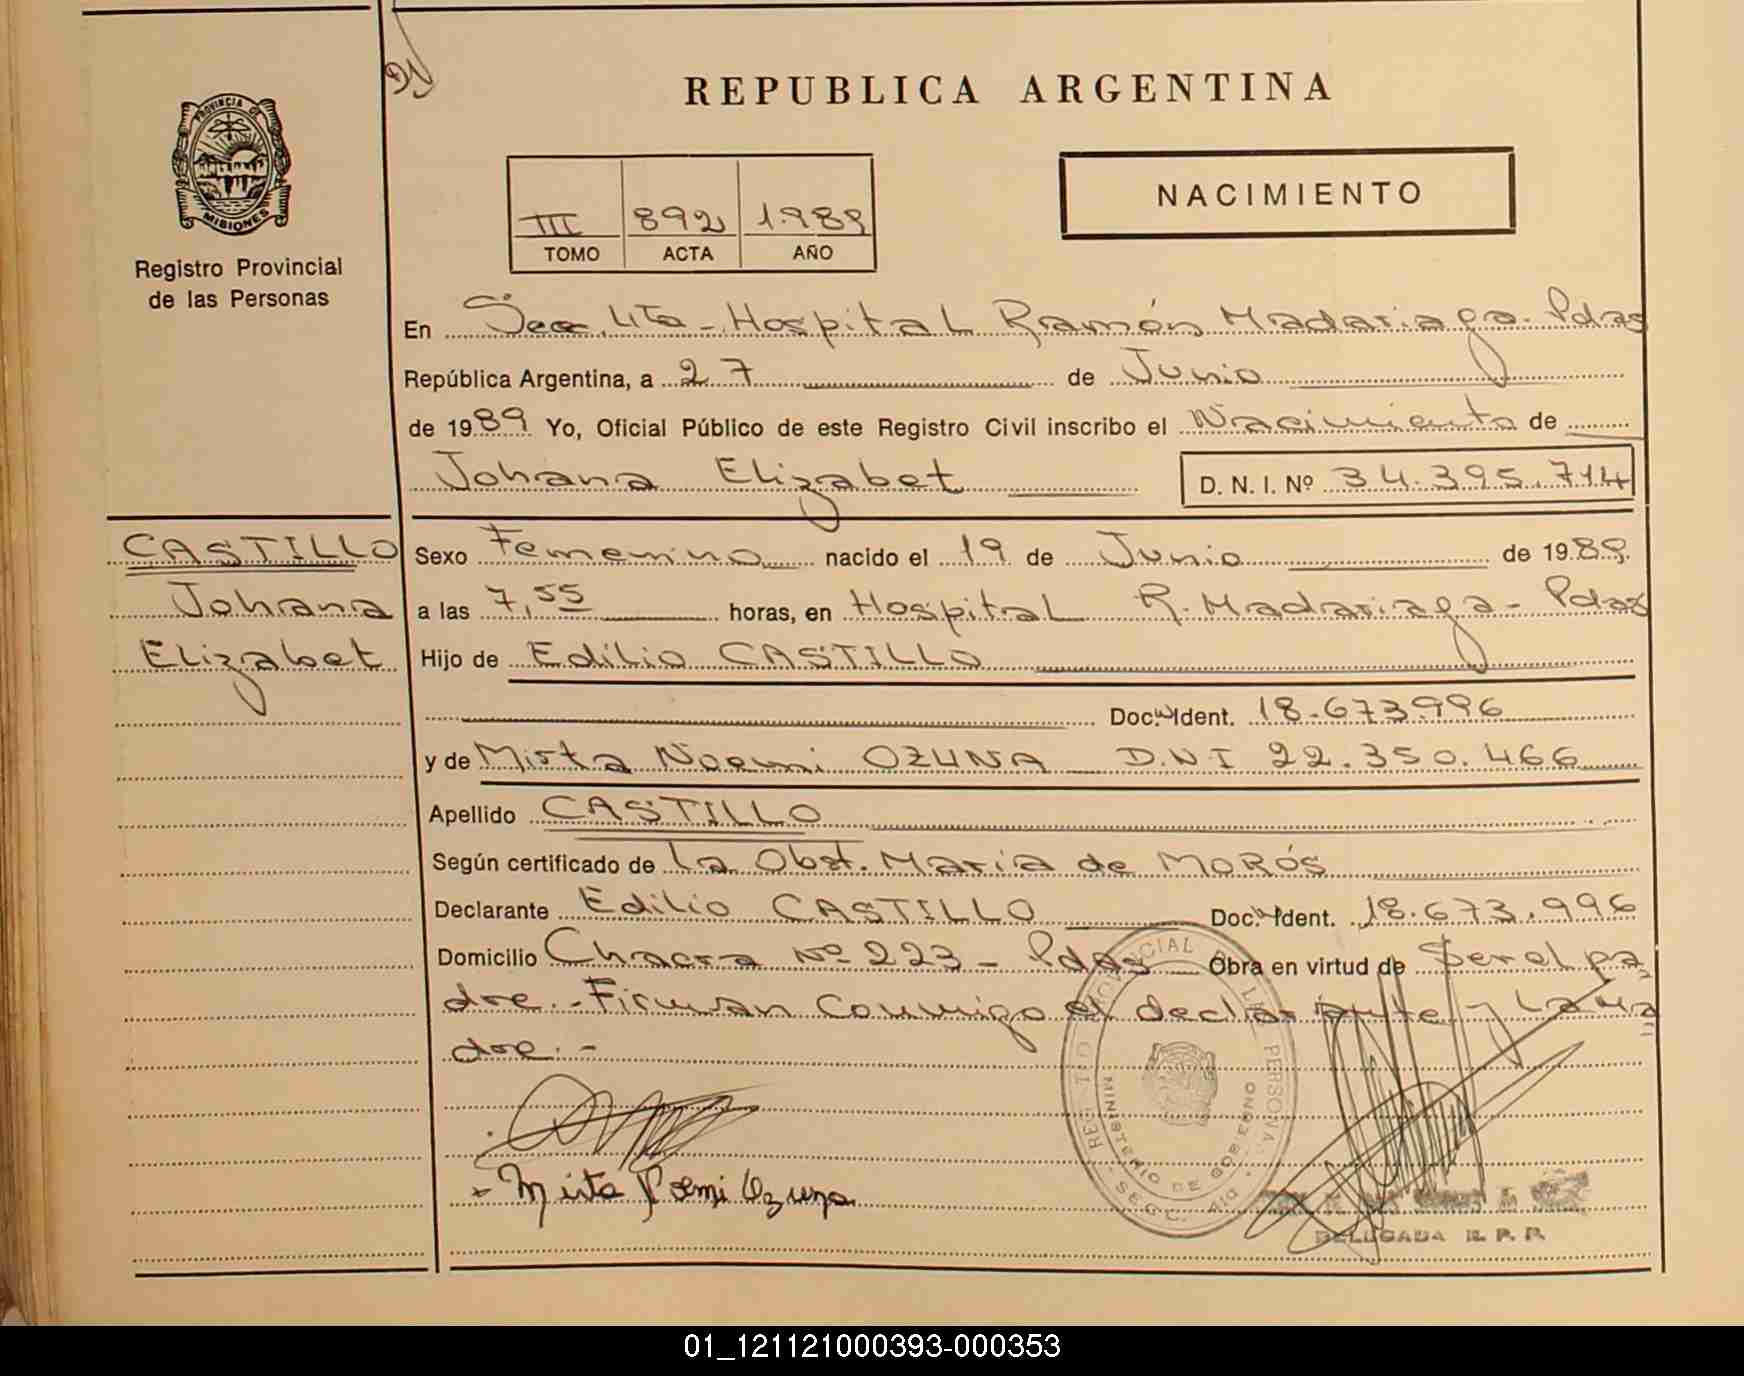 REPUBLICA ARGENTINA
PROVINCIA DE
MISIONES
Registro Provincial
de las Personas
III 892 1.989
TOMO ACTA AÑO
NACIMIENTO
En Secc. 4ta - Hospital Ramón Madariaga - Pdas
República Argentina, a 27 de Junio
de 1989 Yo, Oficial Público de este Registro Civil inscribo el Nacimiento de
Johana Elizabet D. N. I. Nº 34.395.714
CASTILLO
Johana
Elizabet
Sexo Femenino nacido el 19 de Junio de 1989.
a las 7,55 horas, en Hospital R. Madariaga - Pdas
Hijo de Edilio CASTILLO
Doc. Ident. 18.673.996
y de Mirta Noemi OZUNA D.N.I 22.350.466
Apellido CASTILLO
Según certificado de la Obst. María de MORós
Declarante Edilio CASTILLO Doc. Ident. 18.673.996
Domicilio Chacra Nº 223 - Pdas Obra en virtud de Ser el pa
dre.- Firman conmigo el declarante y la ma
dre.-
Mirta Noemi Ozuna
MINISTERIO DE GOBIERNO
DELEGADA R. P. P.
01_121121000393-000353